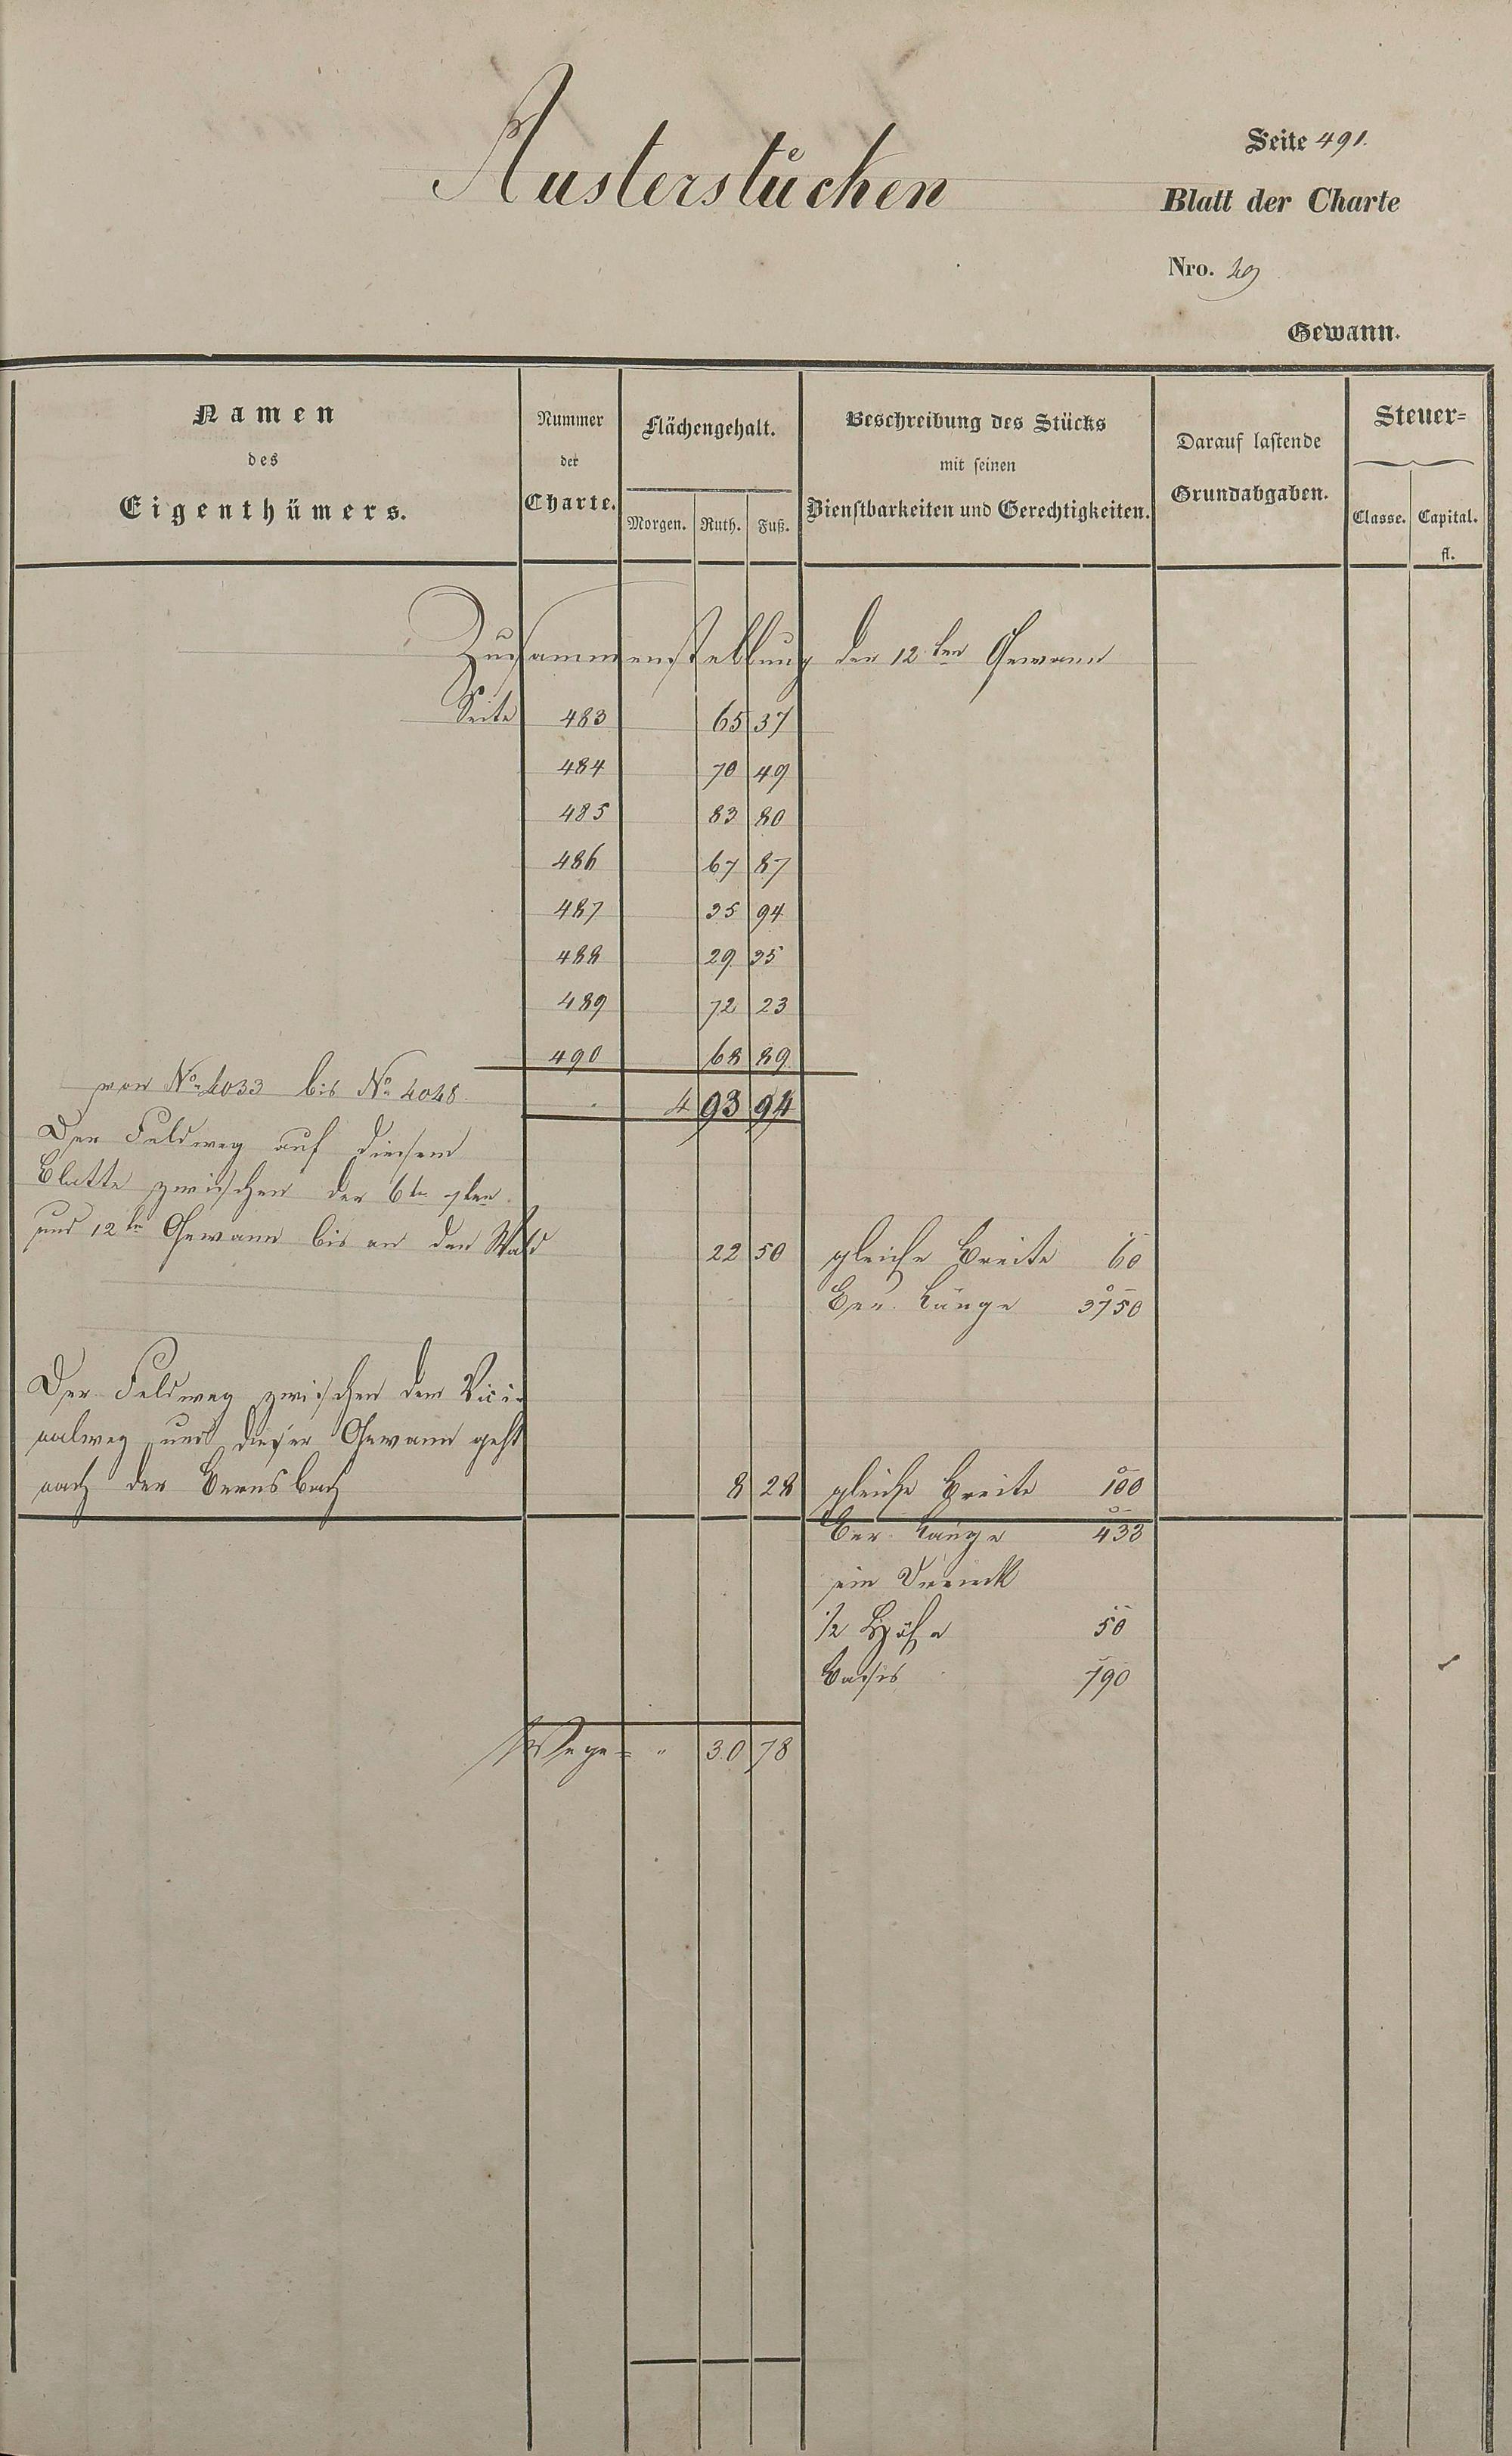 Seite 491.
Austerstücken
Blatt der Charte
Nro. 29
Gewann.
Namen des Eigenthümers.
Nummer der Charte.
Flächengehalt.
Morgen. Ruth. Fuß.
Beschreibung des Stücks mit seinen Dienstbarkeiten und Gerechtigkeiten.
Darauf lastende Grundabgaben.
Steuer=
Classe. Capital.
fl.
Zusammenstellung der 12ten Gewann
Seite 483 65 37
484 70 49
485 83 80
486 67 87
487 35 94
488 29 35
489 72 23
490 68 89
von No 4033 bis No 4048. 4 93 94
Der Feldweg auf diesem
Blatte zwischen der 6ten 7ten
und 12ten Gewann bis an den Wald 22 50 gleiche Breite 60
Ber. Länge 3750
Der Feldweg zwischen dem Vici-
nalweg und dieser Gewann geht
nach der Bernsbach 8 28 gleiche Breite 100
Ber. Länge 433
ein Dreieck
1/2 Höhe 50
Basis 790
Wege = " 30 78